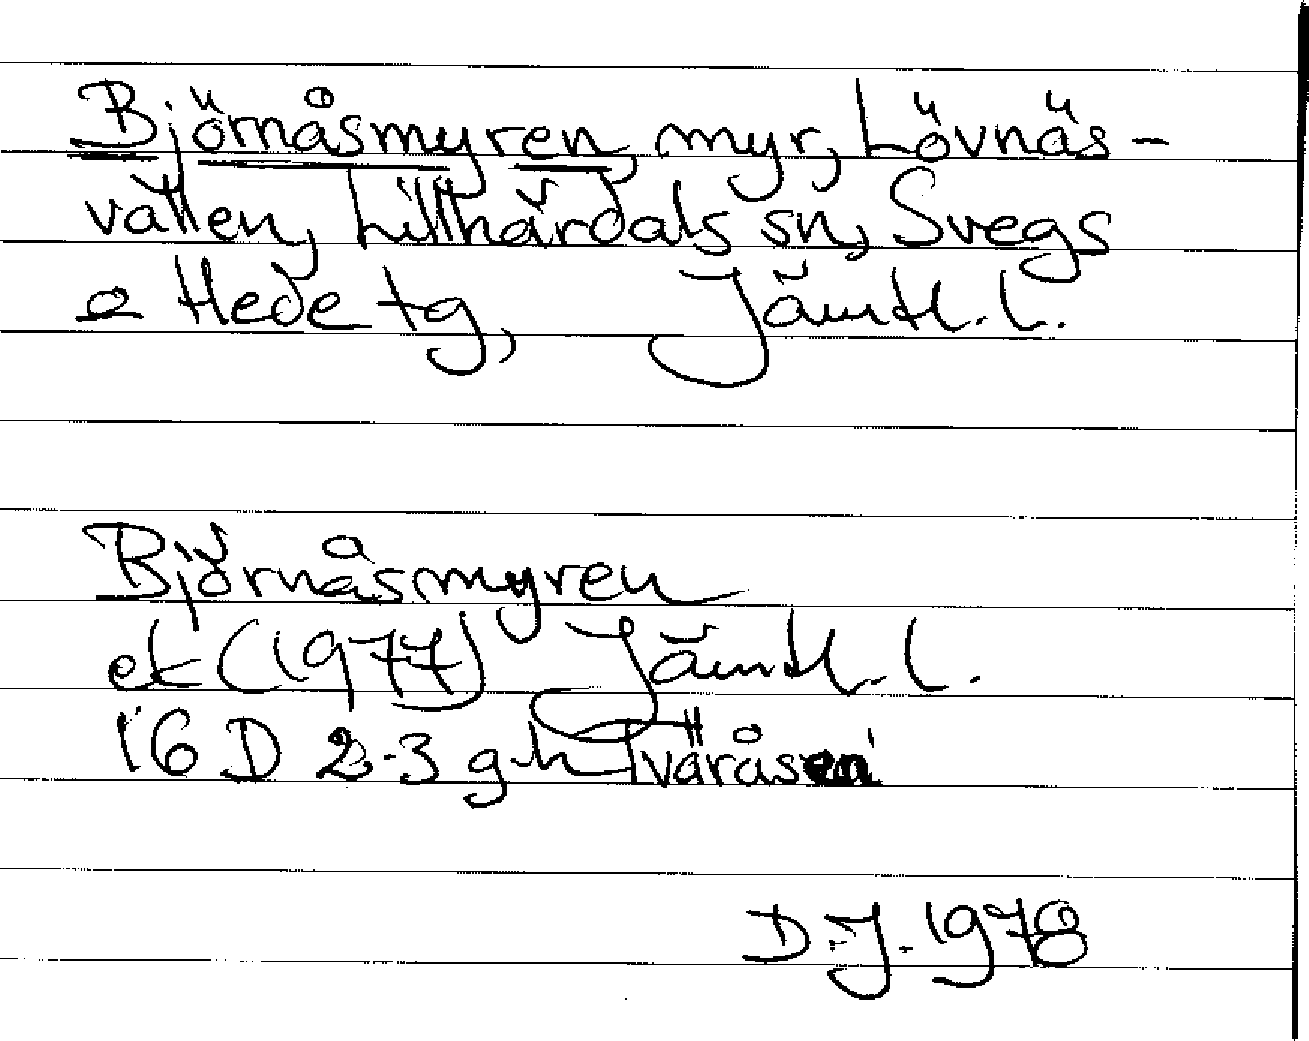 Björnåsmyren, myr, Lövnäs-
vallen, Lillhärdals sn, Svegs
o Hede tg, Jämtl. l.
Björnåsmyren
ek (1977) Jämtl. l.
16 D 2-3 g-h Tväråsen
D.J. 1978